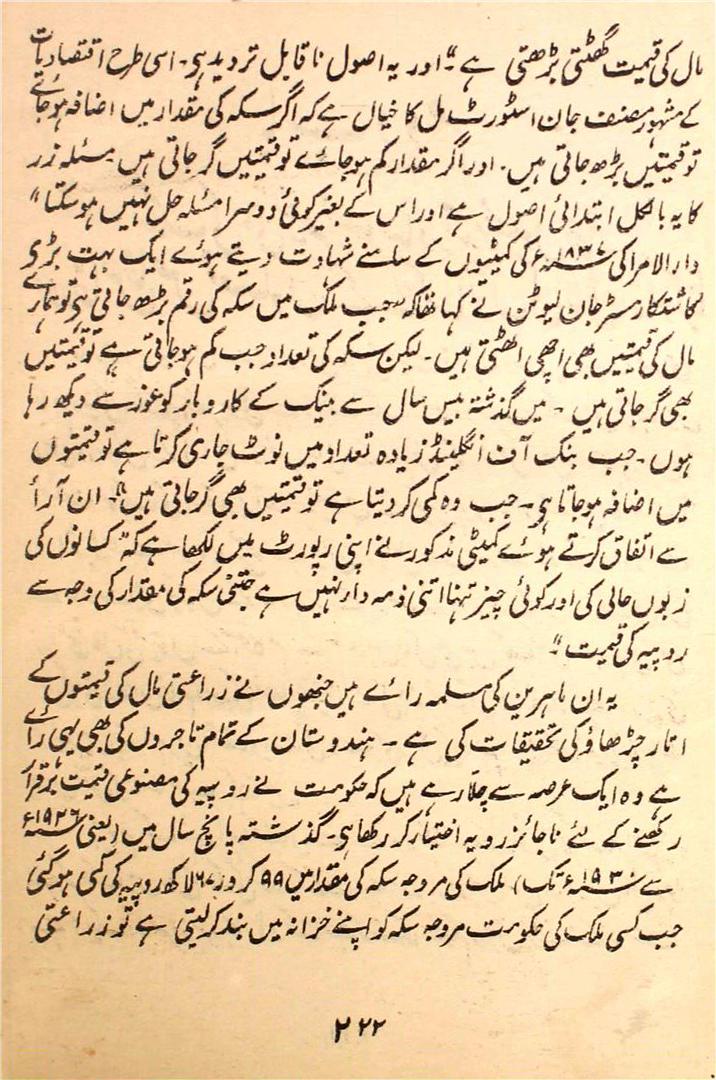 مال کی قیمت گھٹتی بڑھتی ہے۔" اور یہ اصول ناقابل تردید ہی۔ اسی طرح اقتصادیات
کے مشہور مصنف جان اسٹورٹ مل کا خیال ہے کہ اگر سکہ کی مقدار میں اضافہ ہو جائے
تو قیمتیں بڑھ جاتی ہیں۔ اور اگر مقدار کم ہو جائے تو قیمتیں گر جاتی ہیں۔ مسئلہ زر
کا یہ بالکل ابتدائی اصول ہے اور اس کے بغیر کوئی دوسرا مسئلہ حل نہیں ہو سکتا"
دارالامرا کی ۱۸۳۷ء کی کمیٹیوں کے سامنے شہادت دیتے ہوئے ایک بہت بڑی
کاشتکار مسٹر جان لیوٹن نے کہا تھا کہ "جب ملک میں سکہ کی رقم بڑھ جاتی ہی تو ہمارے
مال کی قیمتیں بھی اچھی اٹھتی ہیں۔ لیکن سکہ کی تعداد جب کم ہو جاتی ہے تو قیمتیں
بھی گر جاتی ہیں۔ میں گذشتہ بیس سال سے بینک کے کاروبار کو غور سے دیکھ رہا
ہوں۔ جب بنک آف انگلینڈ زیادہ تعداد میں نوٹ جاری کرتا ہے تو قیمتوں
میں اضافہ ہو جاتا ہی۔ جب وہ کمی کر دیتا ہے تو قیمتیں بھی گر جاتی ہیں"۔ ان آرأ
سے اتفاق کرتے ہوئے کمیٹی مذکور نے اپنی رپورٹ میں لکھا ہے کہ "کسانوں کی
زبوں حالی کی اور کوئی چیز تنہا اتنی ذمہ دار نہیں ہے جتنی سکہ کی مقدار کی وجہ سے
روپیہ کی قیمت"۔
یہ ان ماہرین کی مسلمہ رائے ہیں جنھوں نے زراعتی مال کی قیمتوں کے
اتار چڑھاؤ کی تحقیقات کی ہے۔ ہندوستان کے تمام تاجروں کی بھی یہی رائے
ہے وہ ایک عرصہ سے چلا رہے ہیں کہ حکومت نے روپیہ کی مصنوعی قیمت برقرار
رکھنے کے لئے ناجائز رویہ اختیار کر رکھا ہی۔ گذشتہ پانچ سال میں (یعنی ۱۹۲۶ء
سے ۱۹۳۰ء تک) ملک کی مروجہ سکہ کی مقدار میں ۹۹ کروڑ ۶۷ لاکھ روپیہ کی کمی ہو گئی
جب کسی ملک کی حکومت مروجہ سکہ کو اپنے خزانہ میں بند کر لیتی ہے تو زراعتی
۲۲۲